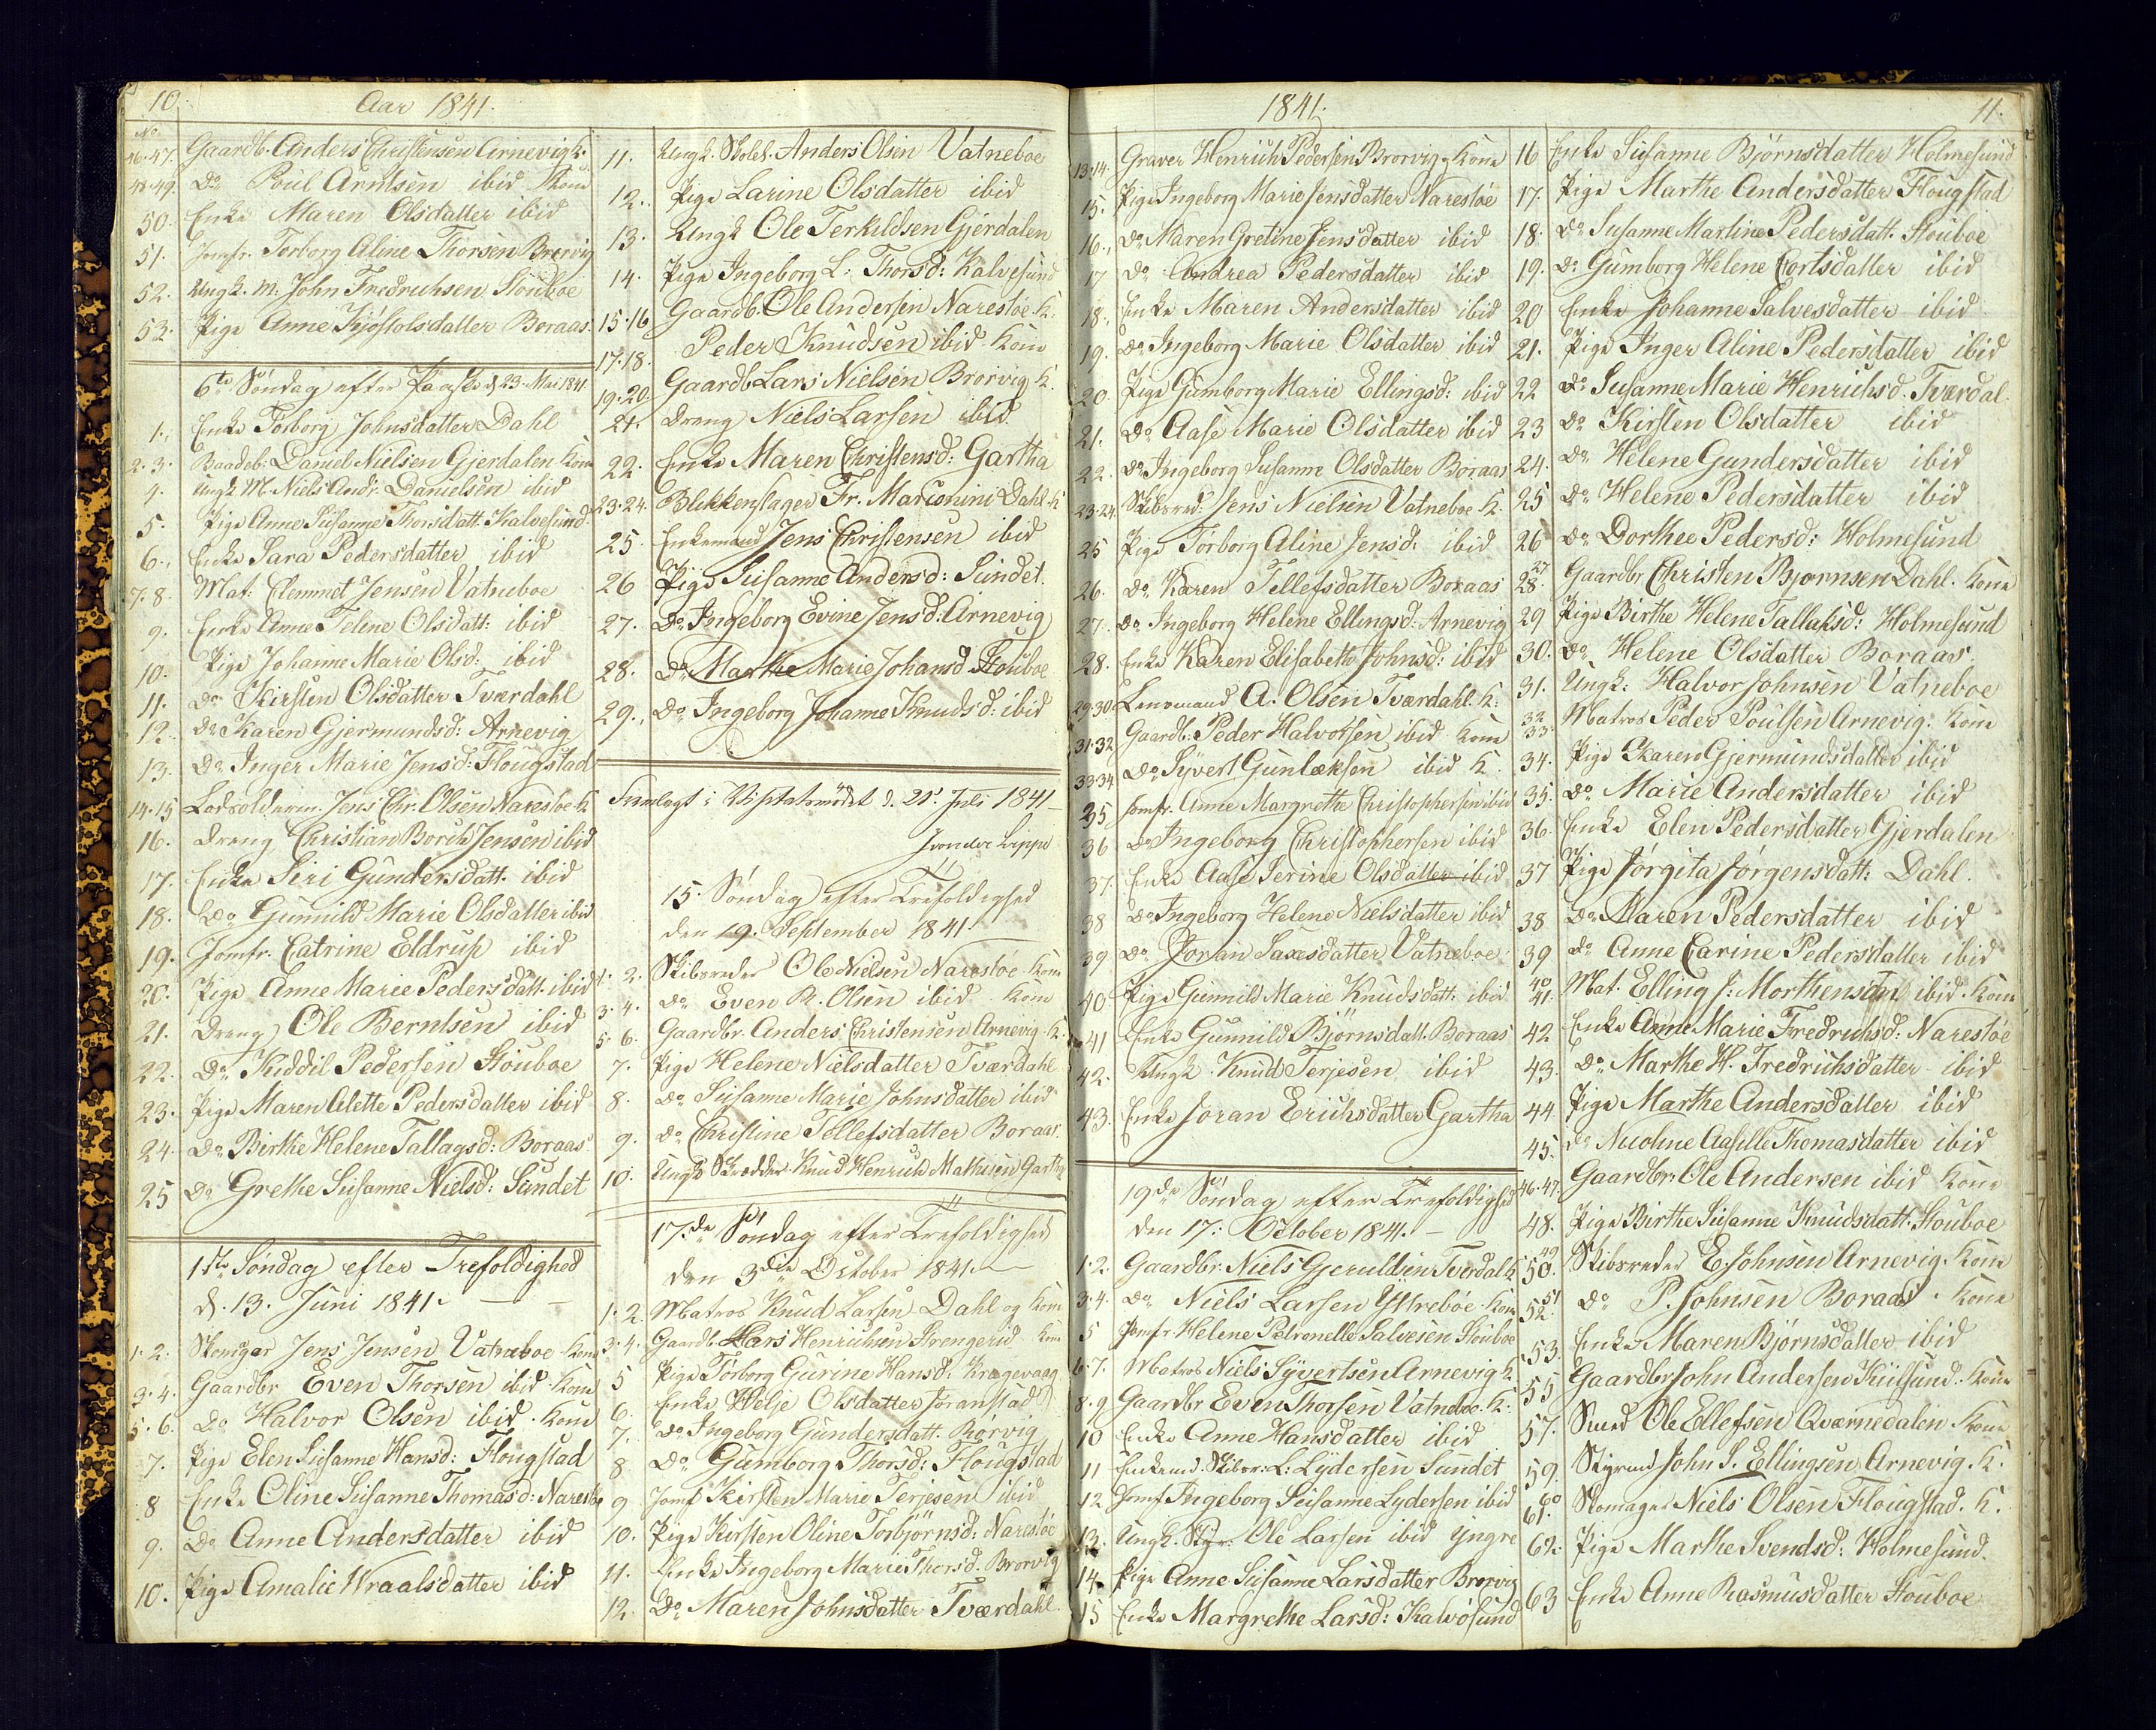 10.
Aar 1841.
No
46.47. Gaardb. Anders Christensen Arnevig K.
48.49. Do Poul Arntsen ibid Kone
50. Enke Maren Olsdatter ibid
51. Jomfr. Torborg Aline Thorsen Brørvig
52. Ungk. M. John Fredrichsen Stouboe
53. Pige Anne Kjøstolsdatter Boraas.
6te Søndag efter Paaske d. 23. Mai 1841.
1. Enke Torborg Johnsdatter Dahl
2.3. Baadsb: Daniel Nielsen Gjerdalen Kone
4. Ungk M. Niels Andr: Danielsen ibid
5. Pige Anne Susanne Thorsdatt. Kalvesund.
6. Enke Sara Pedersdatter ibid
7.8. Mat: Clemmet Jensen Vatneboe
9. Enke Anne Telene Olsdatt: ibid
10. Pige Johanne Marie Olsd: ibid
11. Do Kirsten Olsdatter Tværdahl
12. Do Karen Gjermundsd: Arnevig
13. Do Inger Marie Jensd: Flougstad
14.15 Lodsolderm. Jens Chr. Olsen Narestøe K
16. Dreng Christian Borch Jensen ibid
17. Enke Siri Gundersdatt. ibid
18. Do Gunnild Marie Olsdatter ibid
19. Jomfr. Catrine Eldrup ibid
20. Pige Anne Marie Pedersdatt. ibid
21. Dreng Ole Berntsen ibid
22. Do Kiddil Pedersen Stouboe
23. Pige Maren Alette Pedersdatter ibid
24. Do Birthe Helene Tallagsd: Boraas
25 Do Grethe Susanne Nielsd: Sundet
1ste Søndag efter Trefoldighed
d. 13. Juni 1841.
1.2. Skomager Jens Jensen Vatneboe Kone
3.4. Gaardbr Even Thorsen ibid Kone
5.6. Do Halvor Olsen ibid. Kone
7. Pige Elen Susanne Hansd: Flougstad
8 Enke Oline Susanne Thomasd: Narestøe
9. Do Anne Andersdatter ibid
10. Pige Amalie Wraalsdatter ibid
11. Ungk. Skolel. Anders Olsen Vatneboe
12. Pige Larine Olsdatter ibid
13. Ungk Ole Terkildsen Gjerdalen
14. Pige Ingeborg L: Thorsd: Kalvesund
15.16 Gaardb. Ole Andersen Narestøe. K.
17.18. Peder Knudsen ibid Kone
19.20 Gaardb Lars Nielsen Brørvig K.
21. Dreng Niels Larsen ibid.
22. Enke Maren Christensd: Gartha
23.24. Blikkenslager Fr. Marconini Dahl. K
25. Enkemand Jens Christensen ibid
26 Pige Susanne Andersd: Sundet.
27. Do Ingeborg Evine Jensd: Arnevig
28. Do Marthe Marie Johansd Stouboe
29. Do Ingeborg Johanne Knudsd: ibid
Fremlagt i Visitatsmødet d. 21. Juli 1841
J von der Lippe
15. Søndag efter Trefoldighed
den 19. September 1841.
1. 2. Skibsreder Ole Nielsen Narestøe Kone
3. 4. Do Even R. Olsen ibid Kone
5. 6. Gaardbr. Anders Christensen Arnevig K.
7. Pige Helene Nielsdatter Tværdahl
8. Do Susanne Marie Johnsdatter ibid
9. Do Christine Tellefsdatter Boraas.
10. Ungk Skrædder Knud Henrich Mathisen Gartha
17.de Søndag efter Trefoldighed
den 3die October 1841.
1.2. Matros Knud Larsen Dahl og Kone
3.4. Gaardb. Lars Henrichsen Strengerid Kone
5 Pige Torborg Gurine Hansd: Kragevaag
6. Enke Helje Olsdatter Joranstad
7. Do Ingeborg Gundersdatt. Rørvig
8 Do Gumborg Thorsd: Flougstad
9 Jomf Kirsten Marie Terjesen ibid
10. Pige Kirsten Oline Torbjørnsd: Narestøe
11. Enke Ingeborg Marie Thorsd. Brørvig
12. Do Maren Johnsdatter Tværdahl
1841.
13.14. Graver Henrich Pedersen Brørvig Kone
15. Pige Ingeborg Marie Jensdatter Narestøe
16. Do Maren Gretine Jensdatter ibid
17 Do Andrea Pedersdatter ibid
18. Enke Maren Andersdatter ibid
19. Do Ingeborg Marie Olsdatter ibid
20. Pige Gumborg Marie Ellingsd: ibid
21. Do Aase Marie Olsdatter ibid
22. Do Ingeborg Susanne Olsdatter Boraas
23.24. Skibsred: Jens Nielsen Vatneboe K.
25 Pige Torborg Aline Jensd: ibid
26. Do Karen Tellefsdatter Boraas
27. Do Ingeborg Helene Ellingsd: Arnevig
28. Enke Karen Elisabeth Johnsd: ibid
29.30 Lensmand A. Olsen Tværdahl. K.
31.32 Gaardb. Peder Halvorsen ibid Kone
33.34 Do Syvert Gunlæksen ibid K.
35 Jomfr. Anne Margrethe Christophersen ibid
36 Do Ingeborg Christophersen ibid
37. Enke Aase Serine Olsdatter ibid
38 Do Ingeborg Helene Nielsdatter ibid
39 Do Joran Saxesdatter Vatneboe
40 Pige Gunnild Marie Knudsdatt: ibid
41 Enke Gunnild Bjørnsdatt. Boraas
42. Ungk. Knud Terjesen ibid
43. Enke Joran Erichsdatter Gartha
19de Søndag efter Trefoldighed
den 17: October 1841.
1.2. Gaardbr. Niels Gjeruldsen Tverdal K
3.4. Do Niels Larsen Yttrebøe Kone
5 Jomfr. Helene Petronelle Salvesen Stouboe
6.7. Matros Niels Syvertsen Arnevig K.
8.9 Gaardbr Even Thorsen Vatneboe. K.
10 Enke Anne Hansdatter ibid
11 Enkemd. Skibsr: L: Lydersen Sundet
12 Jomf Ingeborg Susanne Lydersen ibid
13. Ungk. Styr: Ole Larsen ibid yngre
14. Pige Anne Susanne Larsdatter Brørvig
15 Enke Margrethe Larsd: Kalvøsund
11.
16 Enke Susanne Bjørnsdatter Holmesund
17. Pige Marthe Andersdatter Flougstad
18. Do Susanne Martine Pedersdatt. Stouboe
19. Do Gumborg Helene Cortsdatter ibid
20 Enke Johanne Salvesdatter ibid
21. Pige Inger Aline Pedersdatter ibid
22 Do Susanne Marie Henrichsd. Tværdal.
23 Do Kirsten Olsdatter ibid
24. Do Helene Gundersdatter ibid
25 Do Helene Pedersdatter ibid
26 Do Dorthee Pedersd: Holmesund
27 28. Gaardbr. Christen Bjørnsen Dahl. Kone
29 Pige Birthe Helene Tallaksd: Holmesund
30. Do Helene Olsdatter Boraas
31. Ungk: Halvor Johnsen Vatneboe
32 33 Matros Peder Poulsen Arnevig. Kone
34. Pige Karen Gjermundsdatter ibid
35. Do Marie Andersdatter ibid
36. Enke Elen Pedersdatter Gjerdalen
37 Pige Jørgita Jørgensdatt: Dahl.
38 Do Maren Pedersdatter ibid
39 Do Anne Carine Pedersdatter ibid
40 41. Mat. Elling J: Morthensen ibid Kone
42 Enke Anne Marie Fredrichsd: Narestøe
43. Do Marthe H. Fredrichsdatter ibid
44 Pige Marthe Andersdatter ibid
45. Do Aaselle Thomasdatter ibid
46.47. Gaardbr. Ole Andersen ibid Kone
48. Pige Birthe Susanne Knudsdatt: Stouboe
49 50. Skibsreder E. Johnsen Arnevig. Kone
51 52. Do P. Johnsen Boraas Kone
53. Enke Maren Bjørnsdatter ibid
55 Gaardbr John Andersen Kiilsund. Kone
57. Smed Ole Ellefsen Qværnedalen Kone
59. Styrmd John S. Ellingsen Arnevig. K.
60 61. Skomager Niels Olsen Flougstad. K.
62. Pige Marthe Svendsd: Holmesund.
63 Enke Anne Rasmusdatter Stouboe